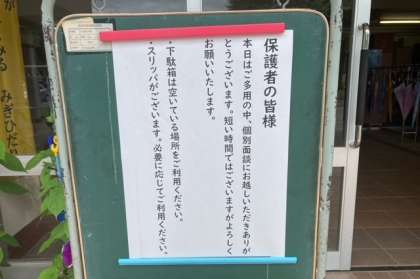 保護者の皆様
本日はご多用の中、個別面談にお越しいただきありが
とうございます。短い時間ではございますがよろしく
お願いいたします。
・下駄箱は空いている場所をご利用ください。
・スリッパがございます。必要に応じてご利用ください。
みる
みぎひだり